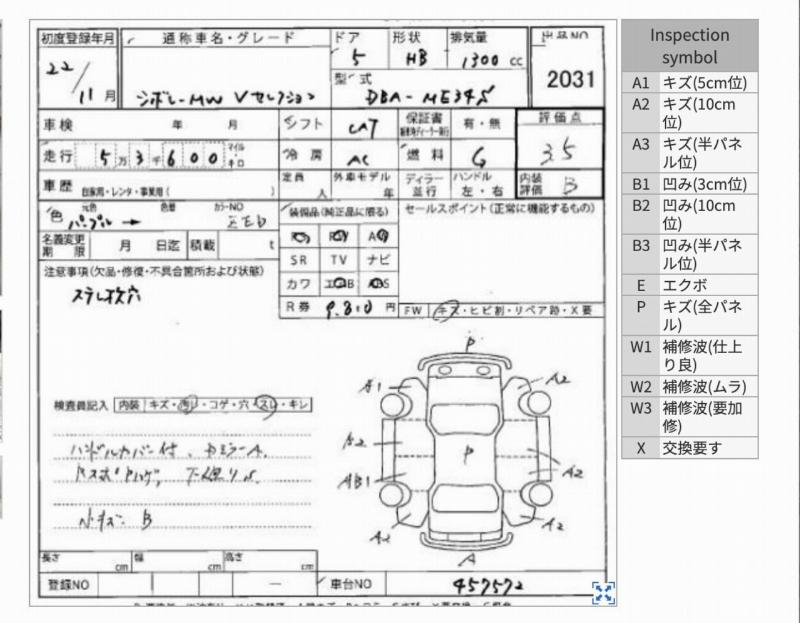 初度登録年月
通称車名・グレード
ドア
形状
排気量
出品NO
22/11月
シボレーMW Vセレクション
5
HB
1300 cc
型式
DBA-ME34S
2031
車検 年 月
シフト
CAT
保証書
有・無
評価点
3.5
走行
5万3千600
マイル・キロ
冷房
AC
燃料
G
車歴
自家用・レンタ・事業用(
定員
人
外車モデル
年
ディラー
並行
ハンドル
左・右
内装
評価
B
色
元色
色替
カラーNO
パープル →
ZEB
装備品(純正品に限る)
セールスポイント(正常に機能するもの)
名義変更
期限
月 日迄
積載
t
SR TV ナビ
カワ
注意事項(欠品・修復・不具合箇所および状態)
R券 9.310円
FW キズ・ヒビ割・リペア跡・X要
検査員記入
内装 キズ・汚れ・コゲ・穴・スレ・キレ
ハンドルカバー付、
下廻りS
内キズ B
P
A1
A2
A2
P
A2
AB1
A2
A2
A
長さ cm
幅 cm
高さ cm
登録NO
車台NO
457572
Inspection
symbol
A1 キズ(5cm位)
A2 キズ(10cm
位)
A3 キズ(半パネ
ル位)
B1 凹み(3cm位)
B2 凹み(10cm
位)
B3 凹み(半パネ
ル位)
E エクボ
P キズ(全パネ
ル)
W1 補修波(仕上
り良)
W2 補修波(ムラ)
W3 補修波(要加
修)
X 交換要す